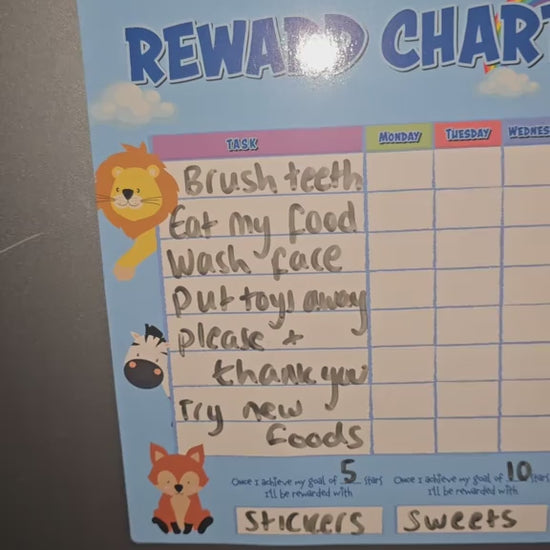 REWARD CHART
TASK MONDAY TUESDAY WEDNES
Brush teeth
Eat my food
Wash face
Put toys away
please +
thank you
Try new
foods
Once I achieve my goal of 5 stars Once I achieve my goal of 10 stars
I'll be rewarded with I'll be rewarded with
Stickers Sweets